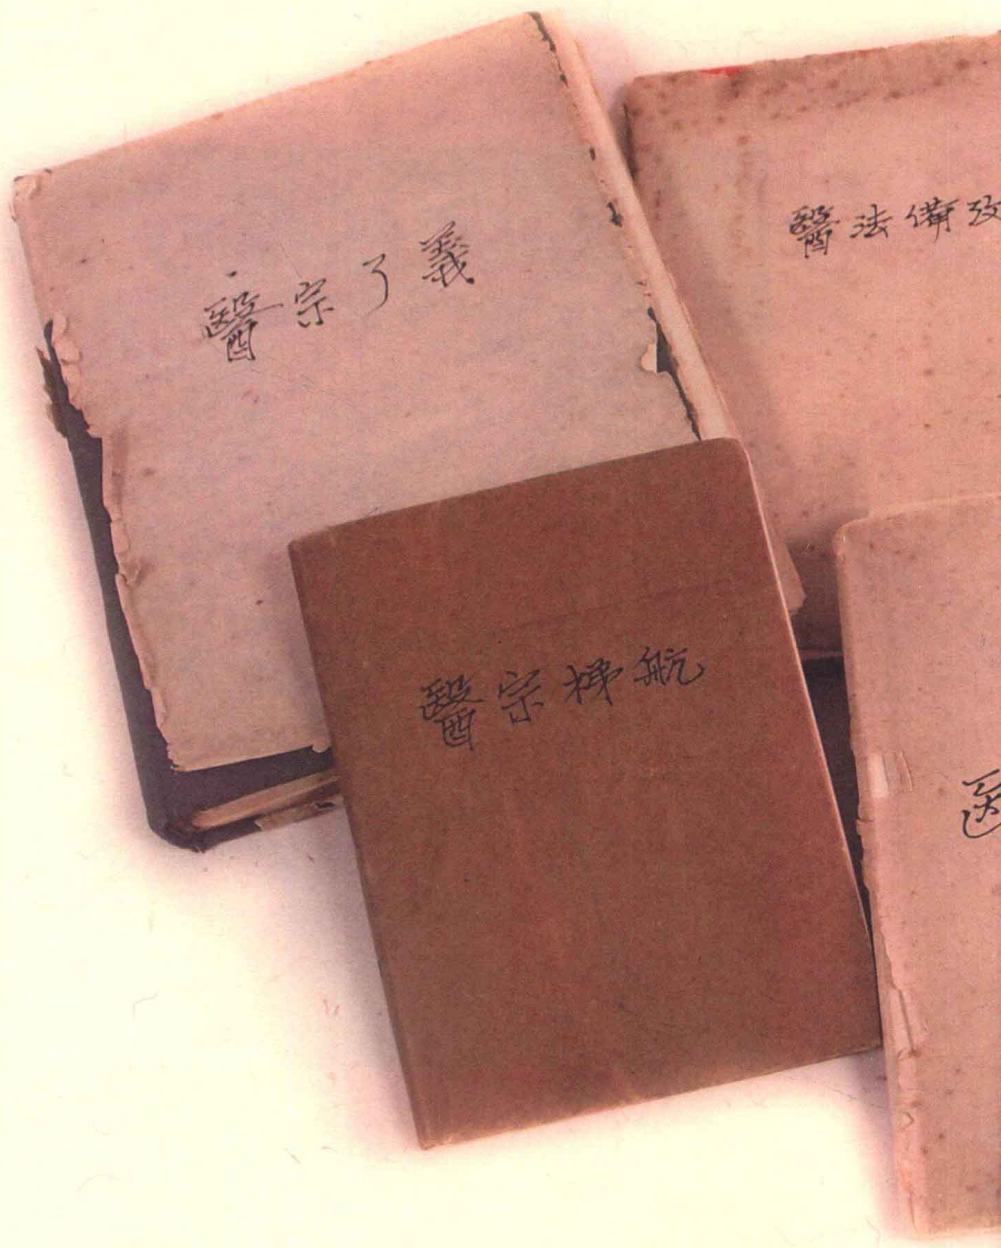 醫宗了義
醫法備攷
醫宗梯航